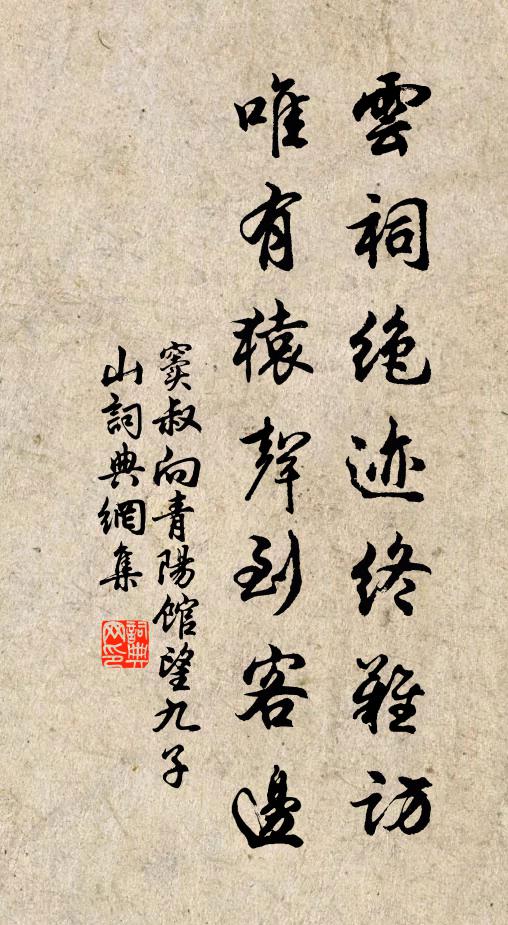 雲祠绝迹终難访
唯有猿聲到客邊
窦叔向青陽館望九子
山詞典網集
詞典网印